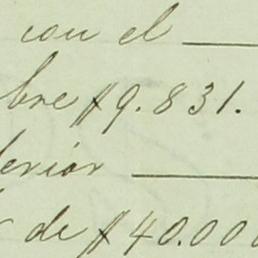 con el
bre $9.831.
erior
de $40.000